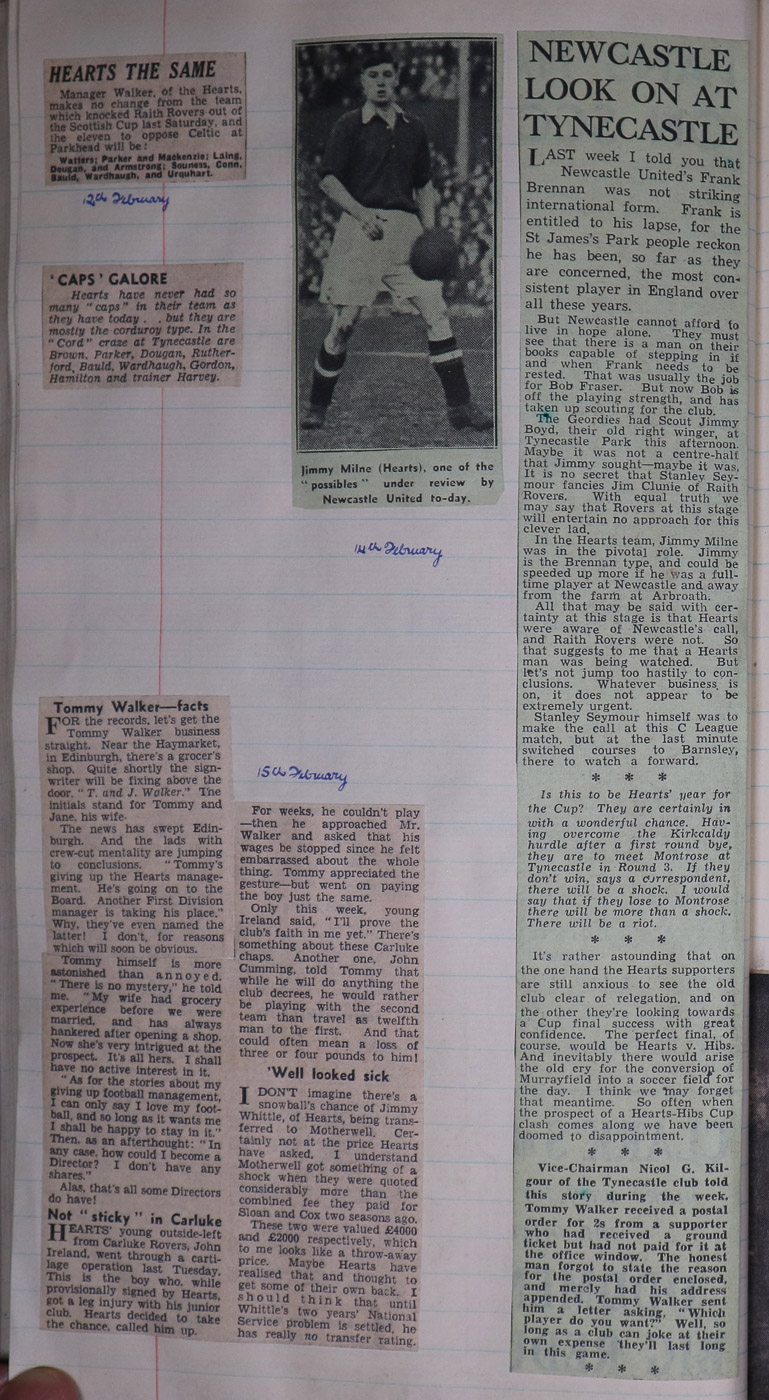 HEARTS THE SAME
Manager Walker, of the Hearts,
makes no change from the team
which knocked Raith Rovers out of
the Scottish Cup last Saturday, and
the eleven to oppose Celtic at
Parkhead will be:
Watters; Parker and Mackenzie; Laing,
Dougan, and Armstrong; Souness, Conn,
Bauld, Wardhaugh, and Urquhart.
12th February
'CAPS' GALORE
Hearts have never had so
many "caps" in their team as
they have today . . but they are
mostly the corduroy type. In the
"Cord" craze at Tynecastle are
Brown, Parker, Dougan, Ruther-
ford, Bauld, Wardhaugh, Gordon,
Hamilton and trainer Harvey.
Jimmy Milne (Hearts), one of the
"possibles" under review by
Newcastle United to-day.
14th February
Tommy Walker—facts
FOR the records, let's get the
Tommy Walker business
straight. Near the Haymarket,
in Edinburgh, there's a grocer's
shop. Quite shortly the sign-
writer will be fixing above the
door, "T. and J. Walker." The
initials stand for Tommy and
Jane, his wife.
The news has swept Edin-
burgh. And the lads with
crew-cut mentality are jumping
to conclusions. "Tommy's
giving up the Hearts manage-
ment. He's going on to the
Board. Another First Division
manager is taking his place."
Why, they've even named the
latter! I don't, for reasons
which will soon be obvious.
Tommy himself is more
astonished than annoyed.
"There is no mystery," he told
me. "My wife had grocery
experience before we were
married, and has always
hankered after opening a shop.
Now she's very intrigued at the
prospect. It's all hers. I shall
have no active interest in it.
"As for the stories about my
giving up football management,
I can only say I love my foot-
ball, and so long as it wants me
I shall be happy to stay in it."
Then, as an afterthought: "In
any case, how could I become a
Director? I don't have any
shares."
Alas, that's all some Directors
do have!
Not "sticky" in Carluke
HEARTS' young outside-left
from Carluke Rovers, John
Ireland, went through a carti-
lage operation last Tuesday.
This is the boy who, while
provisionally signed by Hearts,
got a leg injury with his junior
club. Hearts decided to take
the chance, called him up.
15th February
For weeks, he couldn't play
—then he approached Mr.
Walker and asked that his
wages be stopped since he felt
embarrassed about the whole
thing. Tommy appreciated the
gesture—but went on paying
the boy just the same.
Only this week, young
Ireland said, "I'll prove the
club's faith in me yet." There's
something about these Carluke
chaps. Another one, John
Cumming, told Tommy that
while he will do anything the
club decrees, he would rather
be playing with the second
team than travel as twelfth
man to the first. And that
could often mean a loss of
three or four pounds to him!
'Well looked sick
I DON'T imagine there's a
snowball's chance of Jimmy
Whittle, of Hearts, being trans-
ferred to Motherwell. Cer-
tainly not at the price Hearts
have asked. I understand
Motherwell got something of a
shock when they were quoted
considerably more than the
combined fee they paid for
Sloan and Cox two seasons ago.
These two were valued £4000
and £2000 respectively, which
to me looks like a throw-away
price. Maybe Hearts have
realised that and thought to
get some of their own back. I
should think that until
Whittle's two years' National
Service problem is settled, he
has really no transfer rating.
NEWCASTLE
LOOK ON AT
TYNECASTLE
LAST week I told you that
Newcastle United's Frank
Brennan was not striking
international form. Frank is
entitled to his lapse, for the
St James's Park people reckon
he has been, so far as they
are concerned, the most con-
sistent player in England over
all these years.
But Newcastle cannot afford to
live in hope alone. They must
see that there is a man on their
books capable of stepping in if
and when Frank needs to be
rested. That was usually the job
for Bob Fraser. But now Bob is
off the playing strength, and has
taken up scouting for the club.
The Geordies had Scout Jimmy
Boyd, their old right winger, at
Tynecastle Park this afternoon.
Maybe it was not a centre-half
that Jimmy sought—maybe it was.
It is no secret that Stanley Sey-
mour fancies Jim Clunie of Raith
Rovers. With equal truth we
may say that Rovers at this stage
will entertain no approach for this
clever lad.
In the Hearts team, Jimmy Milne
was in the pivotal role. Jimmy
is the Brennan type, and could be
speeded up more if he was a full-
time player at Newcastle and away
from the farm at Arbroath.
All that may be said with cer-
tainty at this stage is that Hearts
were aware of Newcastle's call,
and Raith Rovers were not. So
that suggests to me that a Hearts
man was being watched. But
let's not jump too hastily to con-
clusions. Whatever business is
on, it does not appear to be
extremely urgent.
Stanley Seymour himself was to
make the call at this C League
match, but at the last minute
switched courses to Barnsley,
there to watch a forward.
* * *
Is this to be Hearts' year for
the Cup? They are certainly in
with a wonderful chance. Hav-
ing overcome the Kirkcaldy
hurdle after a first round bye,
they are to meet Montrose at
Tynecastle in Round 3. If they
don't win, says a correspondent,
there will be a shock. I would
say that if they lose to Montrose
there will be more than a shock.
There will be a riot.
* * *
It's rather astounding that on
the one hand the Hearts supporters
are still anxious to see the old
club clear of relegation, and on
the other they're looking towards
a Cup final success with great
confidence. The perfect final, of
course, would be Hearts v. Hibs.
And inevitably there would arise
the old cry for the conversion of
Murrayfield into a soccer field for
the day. I think we may forget
that meantime. So often when
the prospect of a Hearts-Hibs Cup
clash comes along we have been
doomed to disappointment.
* * *
Vice-Chairman Nicol G. Kil-
gour of the Tynecastle club told
this story during the week.
Tommy Walker received a postal
order for 2s from a supporter
who had received a ground
ticket but had not paid for it at
the office window. The honest
man forgot to state the reason
for the postal order enclosed,
and merely had his address
appended. Tommy Walker sent
him a letter asking, "Which
player do you want?" Well, so
long as a club can joke at their
own expense they'll last long
in this game.
* * *